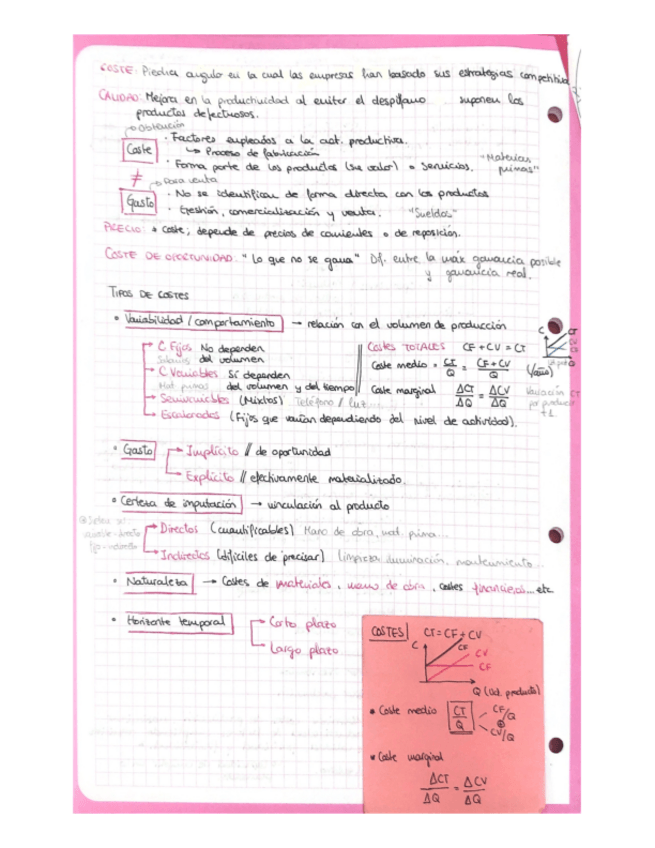 COSTE: Piedra angulo en la cual las empresas han basado sus estrategias competitivas
CALIDAD: Mejora en la productividad al evitar el despilfarro suponen los
productos defectuosos.
Obtención
Coste
· Factores empleados a la act. productiva.
↳ Proceso de fabricación
· Forma parte de los productos (su valor) o servicios. "Materias primas"
≠
Para venta
Gasto
· No se identifican de forma directa con los productos
· Gestión, comercialización y venta. "Sueldos"
PRECIO: ≠ coste; depende de precios de corrientes o de reposición.
COSTE DE OPORTUNIDAD: "Lo que no se gana" Dif. entre la max ganancia posible
y ganancia real.
TIPOS DE COSTES
• Variabilidad / comportamiento → relación con el volumen de producción
→ C Fijos No dependen
Salarios del volumen
→ C Variables Sí dependen
Mat. primas del volumen y del tiempo
→ Semivariables (Mixtos) Teléfono / luz...
→ Escalonados (Fijos que varían dependiendo del nivel de actividad).
Costes TOTALES CF + CV = CT
Coste medio = CT/Q = (CF + CV)/Q
Coste marginal ΔCT/ΔQ = ΔCV/ΔQ
Variación CT
por producir
+ 1.
C CT
CV
• Gasto
→ Implícito // de oportunidad
→ Explícito // efectivamente materializado.
• Certeza de imputación → vinculación al producto
→ Directos (cuantificables) Mano de obra, mat. prima...
→ Indirectos (difíciles de precisar) Limpieza, iluminación, mantenimiento...
• Naturaleza → Costes de materiales, mano de obra, costes financieros... etc
• Horizonte temporal
→ Corto plazo
→ Largo plazo
COSTES CT = CF + CV
C
CV
CF
Q (Ud. producto)
• Coste medio CT/Q CF/Q
⊕
CV/Q
• Coste marginal
ΔCT/ΔQ = ΔCV/ΔQ